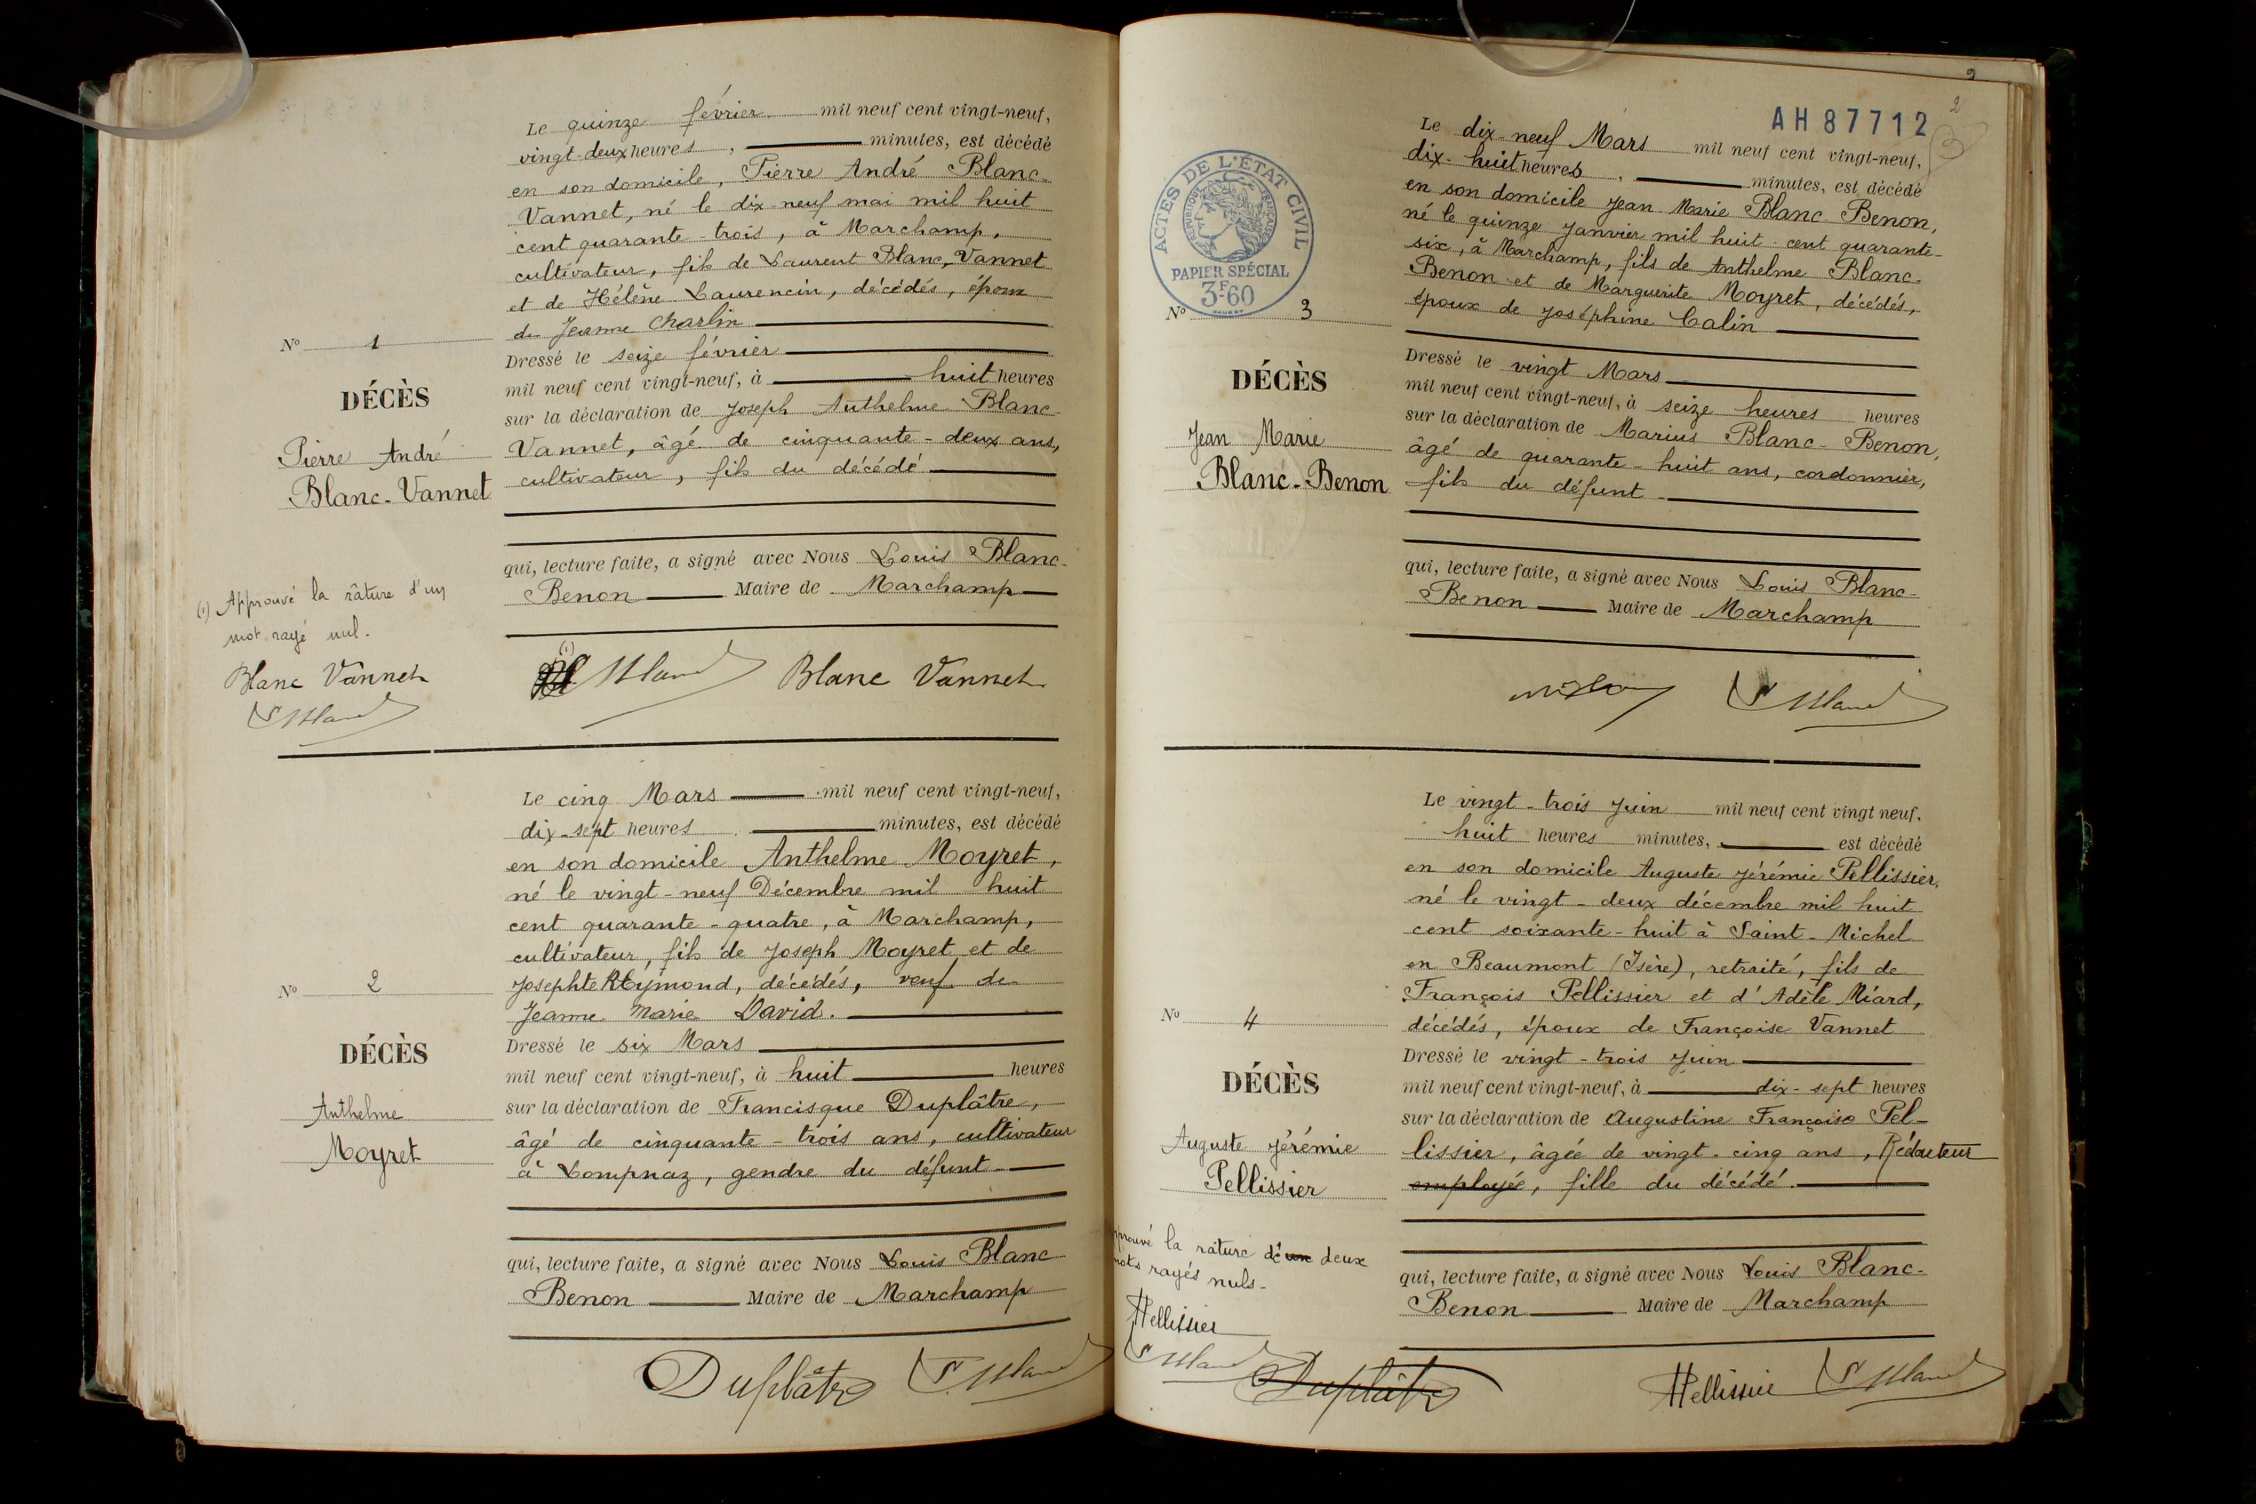 Le quinze février mil neuf cent vingt-neuf,
vingt-deux heures, minutes, est décédé
en son domicile, Pierre André Blanc-
Vannet, né le dix-neuf mai mil huit
cent quarante-trois, à Marchamp,
cultivateur, fils de Laurent Blanc-Vannet
et de Hélène Laurencin, décédés, époux
de Jeanne Charlin
Dressé le seize février
mil neuf cent vingt-neuf, à huit heures
sur la déclaration de Joseph Anthelme Blanc-
Vannet, âgé de cinquante-deux ans,
cultivateur, fils du décédé
qui, lecture faite, a signé avec Nous Louis Blanc-
Benon Maire de Marchamp
(1)
Blanc Vannet
No 1
DÉCÈS
Pierre André
Blanc-Vannet
(1) Approuvé la râture d'un
mot rayé nul.
Blanc Vannet
Le cinq Mars mil neuf cent vingt-neuf,
dix-sept heures minutes, est décédé
en son domicile Anthelme Moyret,
né le vingt-neuf Décembre mil huit
cent quarante-quatre, à Marchamp,
cultivateur, fils de Joseph Moyret et de
Josephte Reymond, décédés, veuf de
Jeanne Marie David.
Dressé le six Mars
mil neuf cent vingt-neuf, à huit heures
sur la déclaration de Francisque Duplâtre,
âgé de cinquante-trois ans, cultivateur
à Lompnaz, gendre du défunt
qui, lecture faite, a signé avec Nous Louis Blanc
Benon Maire de Marchamp
Duplâtre
No 2
DÉCÈS
Anthelme
Moyret
2
2
AH87712
ACTES DE L'ÉTAT CIVIL
RÉPUBLIQUE FRANÇAISE
PAPIER SPÉCIAL
3F60
Le dix-neuf Mars mil neuf cent vingt-neuf,
dix-huit heures, minutes, est décédé
en son domicile Jean Marie Blanc-Benon,
né le quinze Janvier mil huit cent quarante-
six, à Marchamp, fils de Anthelme Blanc-
Benon et de Marguerite Moyret, décédés,
époux de Joséphine Calin
Dressé le vingt Mars
mil neuf cent vingt-neuf, à seize heures heures
sur la déclaration de Marius Blanc-Benon,
âgé de quarante-huit ans, cordonnier,
fils du défunt
qui, lecture faite, a signé avec Nous Louis Blanc-
Benon Maire de Marchamp
No 3
DÉCÈS
Jean Marie
Blanc-Benon
Le vingt-trois Juin mil neuf cent vingt neuf,
huit heures minutes, est décédé
en son domicile Auguste Jérémie Pellissier,
né le vingt-deux décembre mil huit
cent soixante-huit à Saint-Michel
en Beaumont (Isère), retraité, fils de
François Pellissier et d'Adèle Miard,
décédés, époux de Françoise Vannet
Dressé le vingt-trois Juin
mil neuf cent vingt-neuf, à dix-sept heures
sur la déclaration de Augustine Françoise Pel-
lissier, âgée de vingt-cinq ans, Rédacteur
employée, fille du décédé.
qui, lecture faite, a signé avec Nous Louis Blanc-
Benon Maire de Marchamp
Pellissier
No 4
DÉCÈS
Auguste Jérémie
Pellissier
pprouvé la râture de un deux
mots rayés nuls-
Pellissier
Duplâtre